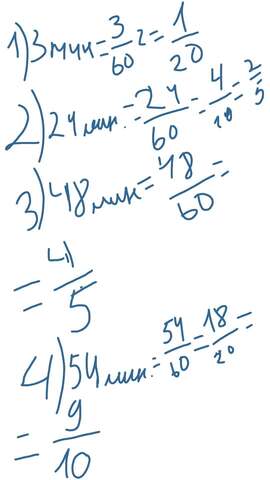 1) 3 мин = 3/60 г = 1/20
2) 24 мин. = 24/60 = 4/10 = 2/5
3) 48 мин = 48/60 =
= 4/5
4) 54 мин. = 54/60 = 18/20 =
= 9/10